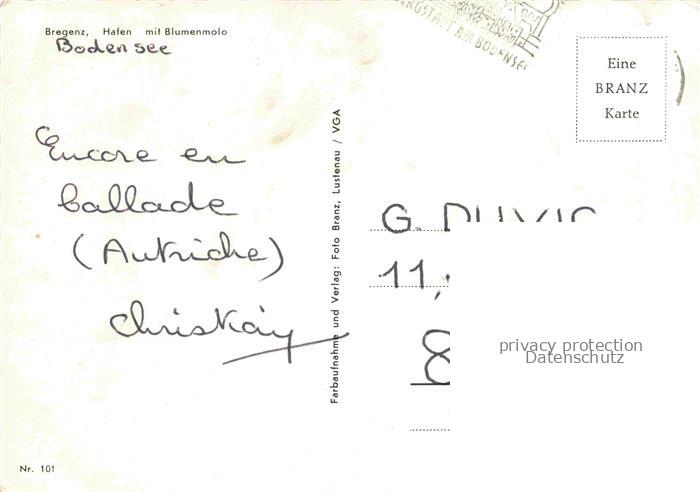 Bregenz, Hafen mit Blumenmolo
Bodensee
BODENSEE
Eine
BRANZ
Karte
Encore en
ballade
(Autriche)
Farbaufnahme und Verlag: Foto Branz, Lustenau / VGA
G.
11,
8
privacy protection
Datenschutz
Nr. 101